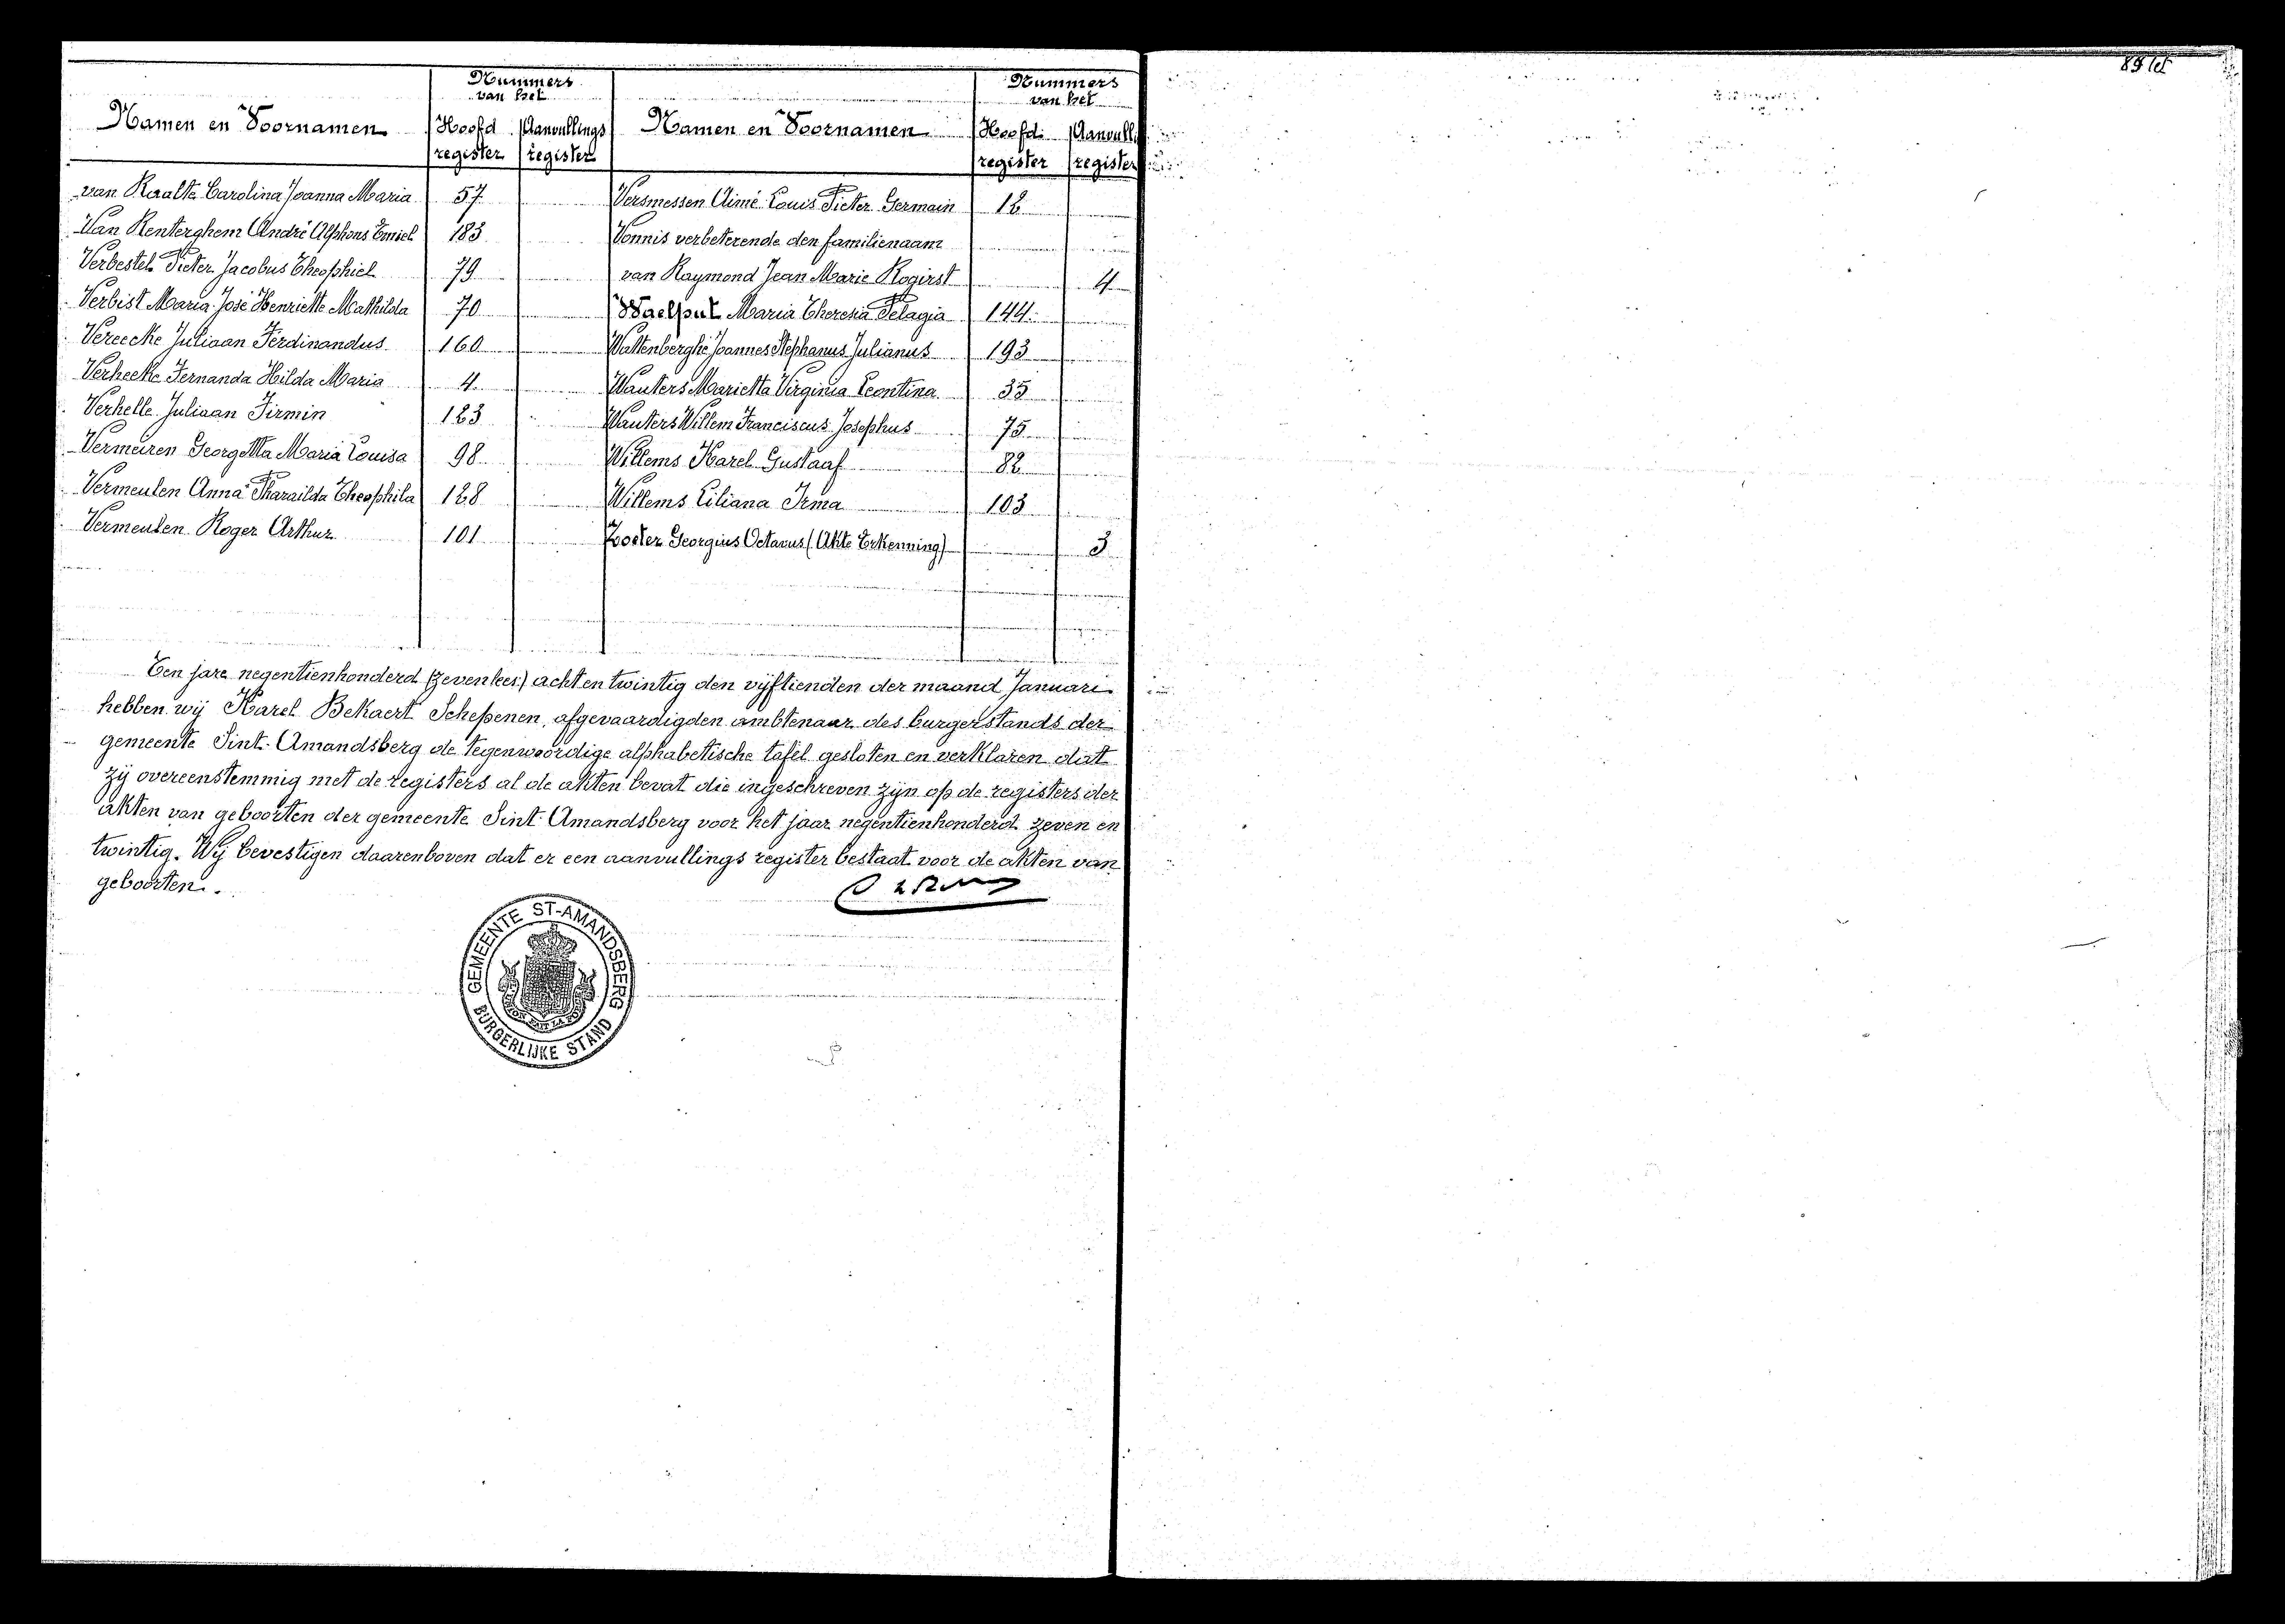 Nummers
van het
Namen en Voornamen Hoofd register Aanvullings register
van Raalte Carolina Joanna Maria 57
Van Renterghem André Alphons Emiel 183
Verbestel Pieter Jacobus Theophiel 79
Verbist Maria José Henriette Mathilda 70
Vereecke Juliaan Ferdinandus 160
Verheeke Fernanda Hilda Maria 4
Verhelle Juliaan Firmin 123
Vermeiren Georgetta Maria Louisa 98
Vermeulen Anna Pharaïlda Theophila 128
Vermeulen Roger Arthur 101
Nummers
van het
Namen en Voornamen Hoofd register Aanvull register
Versmessen Aimé Louis Pieter Germain 12
Vonnis verbeterende den familienaam
van Raymond Jean Marie Rogirst 4
Waelput Maria Theresia Pelagia 144
Wattenberghe Joannes Stephanus Julianus 193
Wauters Marietta Virginia Leontina 35
Wauters Willem Franciscus Josephus 75
Willems Karel Gustaaf 82
Willems Liliana Irma 103
Zoeter Georgius Octavus (Akte Erkenning) 3
Ten jare negentienhonderd (zeven lees:) acht en twintig den vijftienden der maand Januari
hebben wij Karel Bekaert Schepenen, afgevaardigden ambtenaar des burgerstands der
gemeente Sint-Amandsberg de tegenwoordige alphabetische tafel gesloten en verklaren dat
zij overeenstemmig met de registers al de akten bevat die ingeschreven zijn op de registers der
akten van geboorten der gemeente Sint-Amandsberg voor het jaar negentienhonderd zeven en
twintig. Wij bevestigen daarenboven dat er een aanvullings register bestaat voor de akten van
geboorten.
GEMEENTE ST-AMANDSBERG
BURGERLIJKE STAND